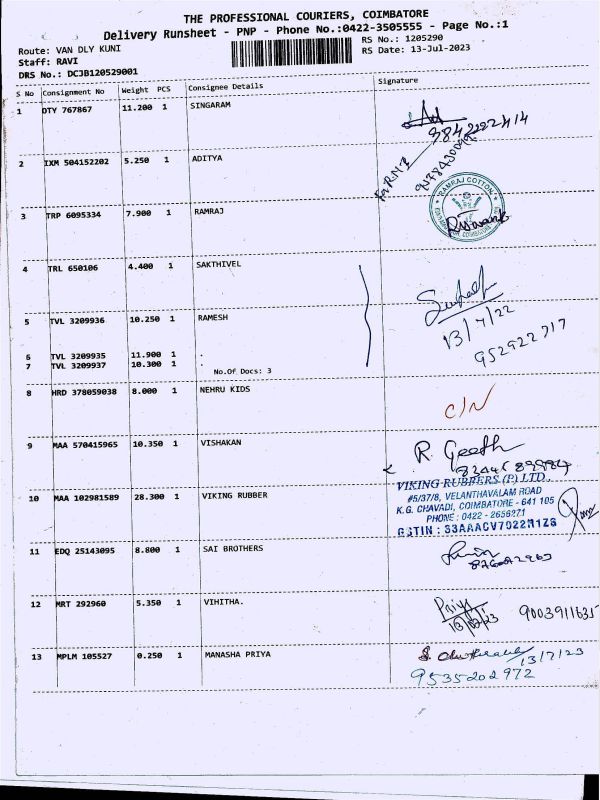 THE PROFESSIONAL COURIERS, COIMBATORE
Delivery Runsheet - PNP - Phone No.:0422-3505555 - Page No.:1
Route: VAN DLY KUNI RS No.: 1205290
Staff: RAVI RS Date: 13-Jul-2023
DRS No.: DCJB120529001
S No Consignment No Weight PCS Consignee Details Signature
1 DTY 767867 11.200 1 SINGARAM
2 IXM 504152202 5.250 1 ADITYA
RAMRAJ COTTON
3 TRP 6095334 7.900 1 RAMRAJ
4 TRL 650106 4.400 1 SAKTHIVEL
5 TVL 3209936 10.250 1 RAMESH
13/7/22
6 TVL 3209935 11.900 1 .
7 TVL 3209937 10.300 1 .
No.Of Docs: 3
8 HRD 378059038 8.000 1 NEHRU KIDS
C/N
9 MAA 570415965 10.350 1 VISHAKAN
R. Geeth
VIKING RUBBERS (P) LTD.,
10 MAA 102981589 28.300 1 VIKING RUBBER
#5/37/8, VELANTHAVALAM ROAD
K.G. CHAVADI, COIMBATORE - 641 105
PHONE : 0422 - 2656271
GSTIN : 33AAACV7022M1Z6
11 EDQ 25143095 8.800 1 SAI BROTHERS
12 MRT 292960 5.350 1 VIHITHA.
Priya 9003911635
13/07/23
13 MPLM 105527 0.250 1 MANASHA PRIYA
13/7/23
9535202972